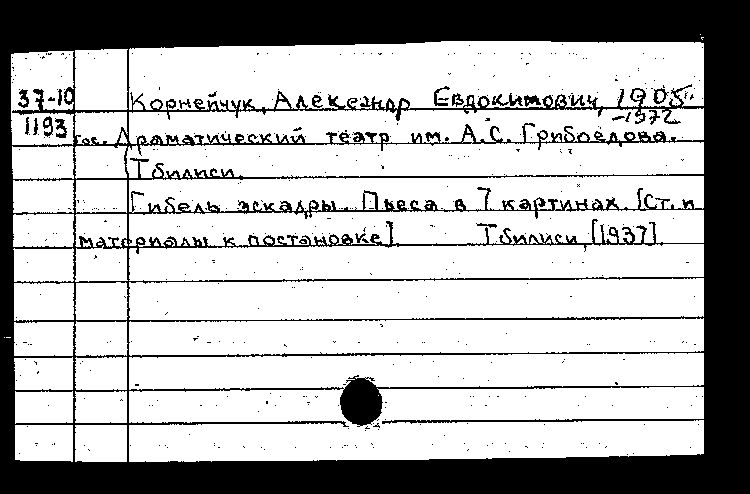 37-10
1193
Корнейчук, Александр Евдокимович, 1905-
-1972
Гос. Драматический театр им. А.С. Грибоедова.
Тбилиси.
Гибель эскадры. Пьеса в 7 картинах. [Ст. и
материалы к постановке]. Тбилиси, [1937].